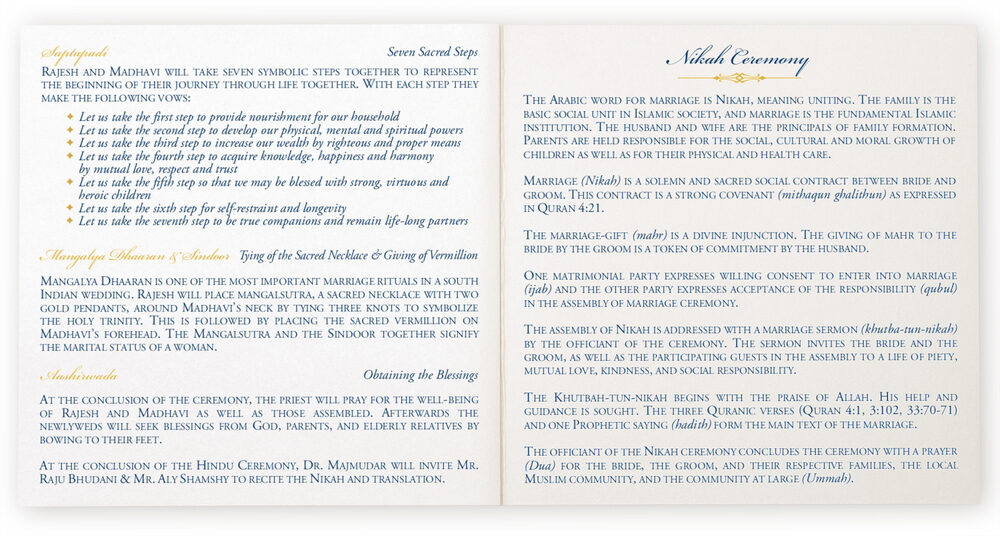 Saptapadi Seven Sacred Steps
Rajesh and Madhavi will take seven symbolic steps together to represent
the beginning of their journey through life together. With each step they
make the following vows:
Let us take the first step to provide nourishment for our household
Let us take the second step to develop our physical, mental and spiritual powers
Let us take the third step to increase our wealth by righteous and proper means
Let us take the fourth step to acquire knowledge, happiness and harmony
by mutual love, respect and trust
Let us take the fifth step so that we may be blessed with strong, virtuous and
heroic children
Let us take the sixth step for self-restraint and longevity
Let us take the seventh step to be true companions and remain life-long partners
Mangalya Dhaaran & Sindoor Tying of the Sacred Necklace & Giving of Vermillion
Mangalya Dhaaran is one of the most important marriage rituals in a south
Indian wedding. Rajesh will place mangalsutra, a sacred necklace with two
gold pendants, around Madhavi's neck by tying three knots to symbolize
the holy trinity. This is followed by placing the sacred vermillion on
Madhavi's forehead. The Mangalsutra and the Sindoor together signify
the marital status of a woman.
Aashirwada Obtaining the Blessings
At the conclusion of the ceremony, the priest will pray for the well-being
of Rajesh and Madhavi as well as those assembled. Afterwards the
newlyweds will seek blessings from God, parents, and elderly relatives by
bowing to their feet.
At the conclusion of the Hindu Ceremony, Dr. Majmudar will invite Mr.
Raju Bhudani & Mr. Aly Shamshy to recite the Nikah and translation.
Nikah Ceremony
The Arabic word for marriage is Nikah, meaning uniting. The family is the
basic social unit in Islamic society, and marriage is the fundamental Islamic
institution. The husband and wife are the principals of family formation.
Parents are held responsible for the social, cultural and moral growth of
children as well as for their physical and health care.
Marriage (Nikah) is a solemn and sacred social contract between bride and
groom. This contract is a strong covenant (mithaqun ghalithun) as expressed
in Quran 4:21.
The marriage-gift (mahr) is a divine injunction. The giving of mahr to the
bride by the groom is a token of commitment by the husband.
One matrimonial party expresses willing consent to enter into marriage
(ijab) and the other party expresses acceptance of the responsibility (qubul)
in the assembly of marriage ceremony.
The assembly of Nikah is addressed with a marriage sermon (khutba-tun-nikah)
by the officiant of the ceremony. The sermon invites the bride and the
groom, as well as the participating guests in the assembly to a life of piety,
mutual love, kindness, and social responsibility.
The Khutbah-tun-nikah begins with the praise of Allah. His help and
guidance is sought. The three Quranic verses (Quran 4:1, 3:102, 33:70-71)
and one Prophetic saying (hadith) form the main text of the marriage.
The officiant of the Nikah ceremony concludes the ceremony with a prayer
(Dua) for the bride, the groom, and their respective families, the local
Muslim community, and the community at large (Ummah).